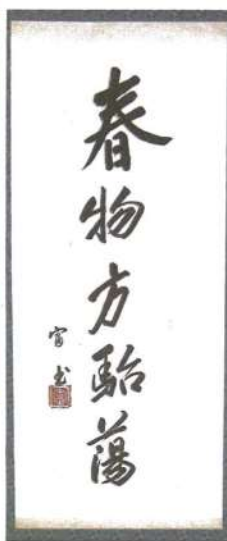 春物方駘蕩